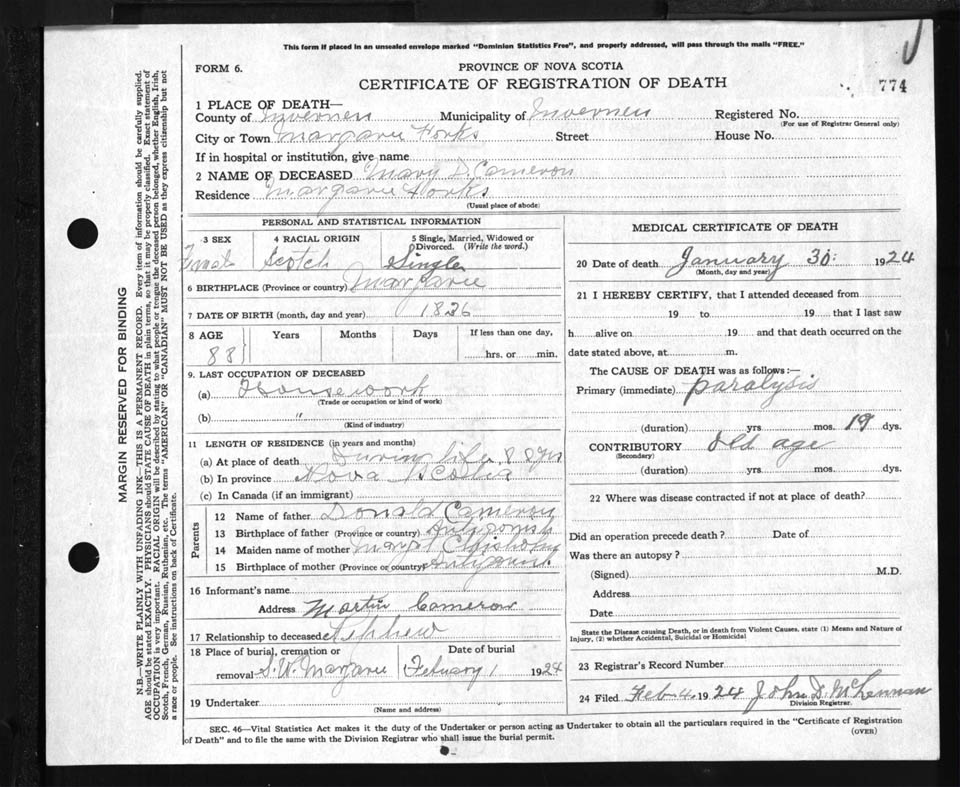 This form if placed in an unsealed envelope marked "Dominion Statistics Free", and properly addressed, will pass through the mails "FREE."
FORM 6.
PROVINCE OF NOVA SCOTIA
CERTIFICATE OF REGISTRATION OF DEATH
774
1 PLACE OF DEATH—
County of Inverness Municipality of Inverness Registered No.
(For use of Registrar General only)
City or Town Margaree Forks Street House No.
If in hospital or institution, give name
2 NAME OF DECEASED Mary D. Cameron
Residence Margaree Forks
(Usual place of abode)
PERSONAL AND STATISTICAL INFORMATION
3 SEX 4 RACIAL ORIGIN 5 Single, Married, Widowed or Divorced. (Write the word.)
Female Scotch Single
6 BIRTHPLACE (Province or country) Margaree
7 DATE OF BIRTH (month, day and year) 1836
8 AGE Years Months Days If less than one day,
88 hrs. or min.
9. LAST OCCUPATION OF DECEASED
(a) Housework
(Trade or occupation or kind of work)
(b) "
(Kind of industry)
11 LENGTH OF RESIDENCE (in years and months)
(a) At place of death During life 88 yrs
(b) In province Nova Scotia
(c) In Canada (if an immigrant)
Parents
12 Name of father Donald Cameron
13 Birthplace of father (Province or country) Antigonish
14 Maiden name of mother Margt Chisholm
15 Birthplace of mother (Province or country)
16 Informant's name
Address Martin Cameron
17 Relationship to deceased Nephew
18 Place of burial, cremation or removal Date of burial
S.W. Margaree February 1 1924
19 Undertaker
(Name and address)
MEDICAL CERTIFICATE OF DEATH
20 Date of death January 30 1924
(Month, day and year)
21 I HEREBY CERTIFY, that I attended deceased from
19 to 19 that I last saw
h alive on 19 and that death occurred on
date stated above, at m.
The CAUSE OF DEATH was as follows:—
Primary (immediate) paralysis
(duration) yrs mos. 19 dys.
CONTRIBUTORY old age
(Secondary)
(duration) yrs. mos. dys.
22 Where was disease contracted if not at place of death?
Did an operation precede death? Date of
Was there an autopsy?
(Signed) M.D.
Address
Date
State the Disease causing Death, or in death from Violent Causes, state (1) Means and Nature of Injury, (2) whether Accidental, Suicidal or Homicidal
23 Registrar's Record Number
24 Filed Feb 4 1924 John D. McLennan
Division Registrar.
SEC. 46—Vital Statistics Act makes it the duty of the Undertaker or person acting as Undertaker to obtain all the particulars required in the "Certificate of Registration
of Death" and to file the same with the Division Registrar who shall issue the burial permit.
(OVER)
MARGIN RESERVED FOR BINDING
N.B—WRITE PLAINLY WITH UNFADING INK—THIS IS A PERMANENT RECORD. Every item of information should be carefully supplied.
AGE should be stated EXACTLY. PHYSICIANS should STATE CAUSE OF DEATH in plain terms, so that it may be properly classified. Exact statement of
OCCUPATION is very important. RACIAL ORIGIN will be described by stating to what people or tongue the deceased person belonged, whether English, Irish,
Scotch, French, German, Russian, Ruthenian, etc. The terms "AMERICAN" OR "CANADIAN" MUST NOT BE USED as they express citizenship but not
a race or people. See instructions on back of Certificate.